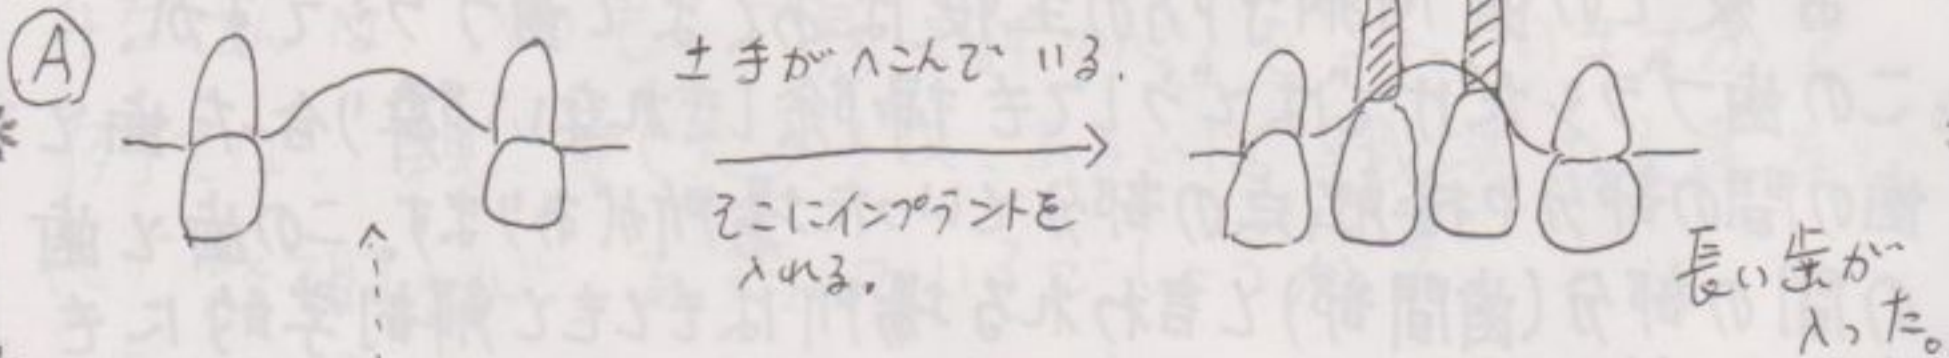 A
土手がへこんでいる.
そこにインプラントを
入れる。
長い歯が
入った。